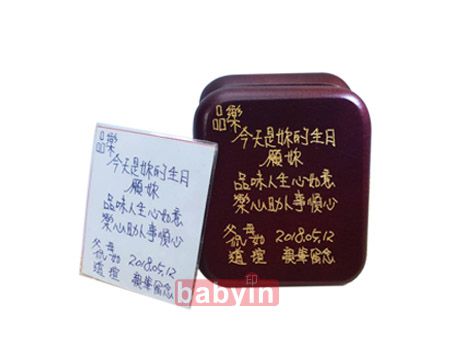 品樂
今天是妳的生日
願妳
品味人生心如意
樂心助人事順心
父母
如 2018.05.12
道瑄 親筆留念
品樂
今天是妳的生日
願妳
品味人生心如意
樂心助人事順心
父母
如 2018.05.12
道瑄 親筆留念
印
babyin